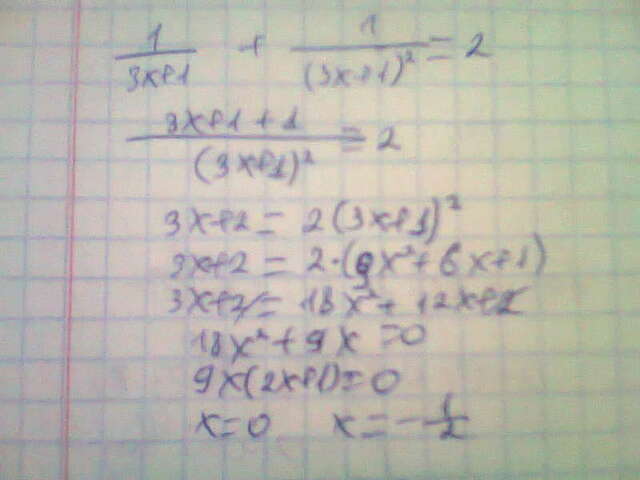 1/(3x+1) + 1/(3x+1)² = 2
(3x+1+1)/(3x+1)² = 2
3x+2 = 2(3x+1)²
3x+2 = 2·(9x²+6x+1)
3x+2 = 18x²+12x+2
18x²+9x=0
9x(2x+1)=0
x=0 x=-1/2